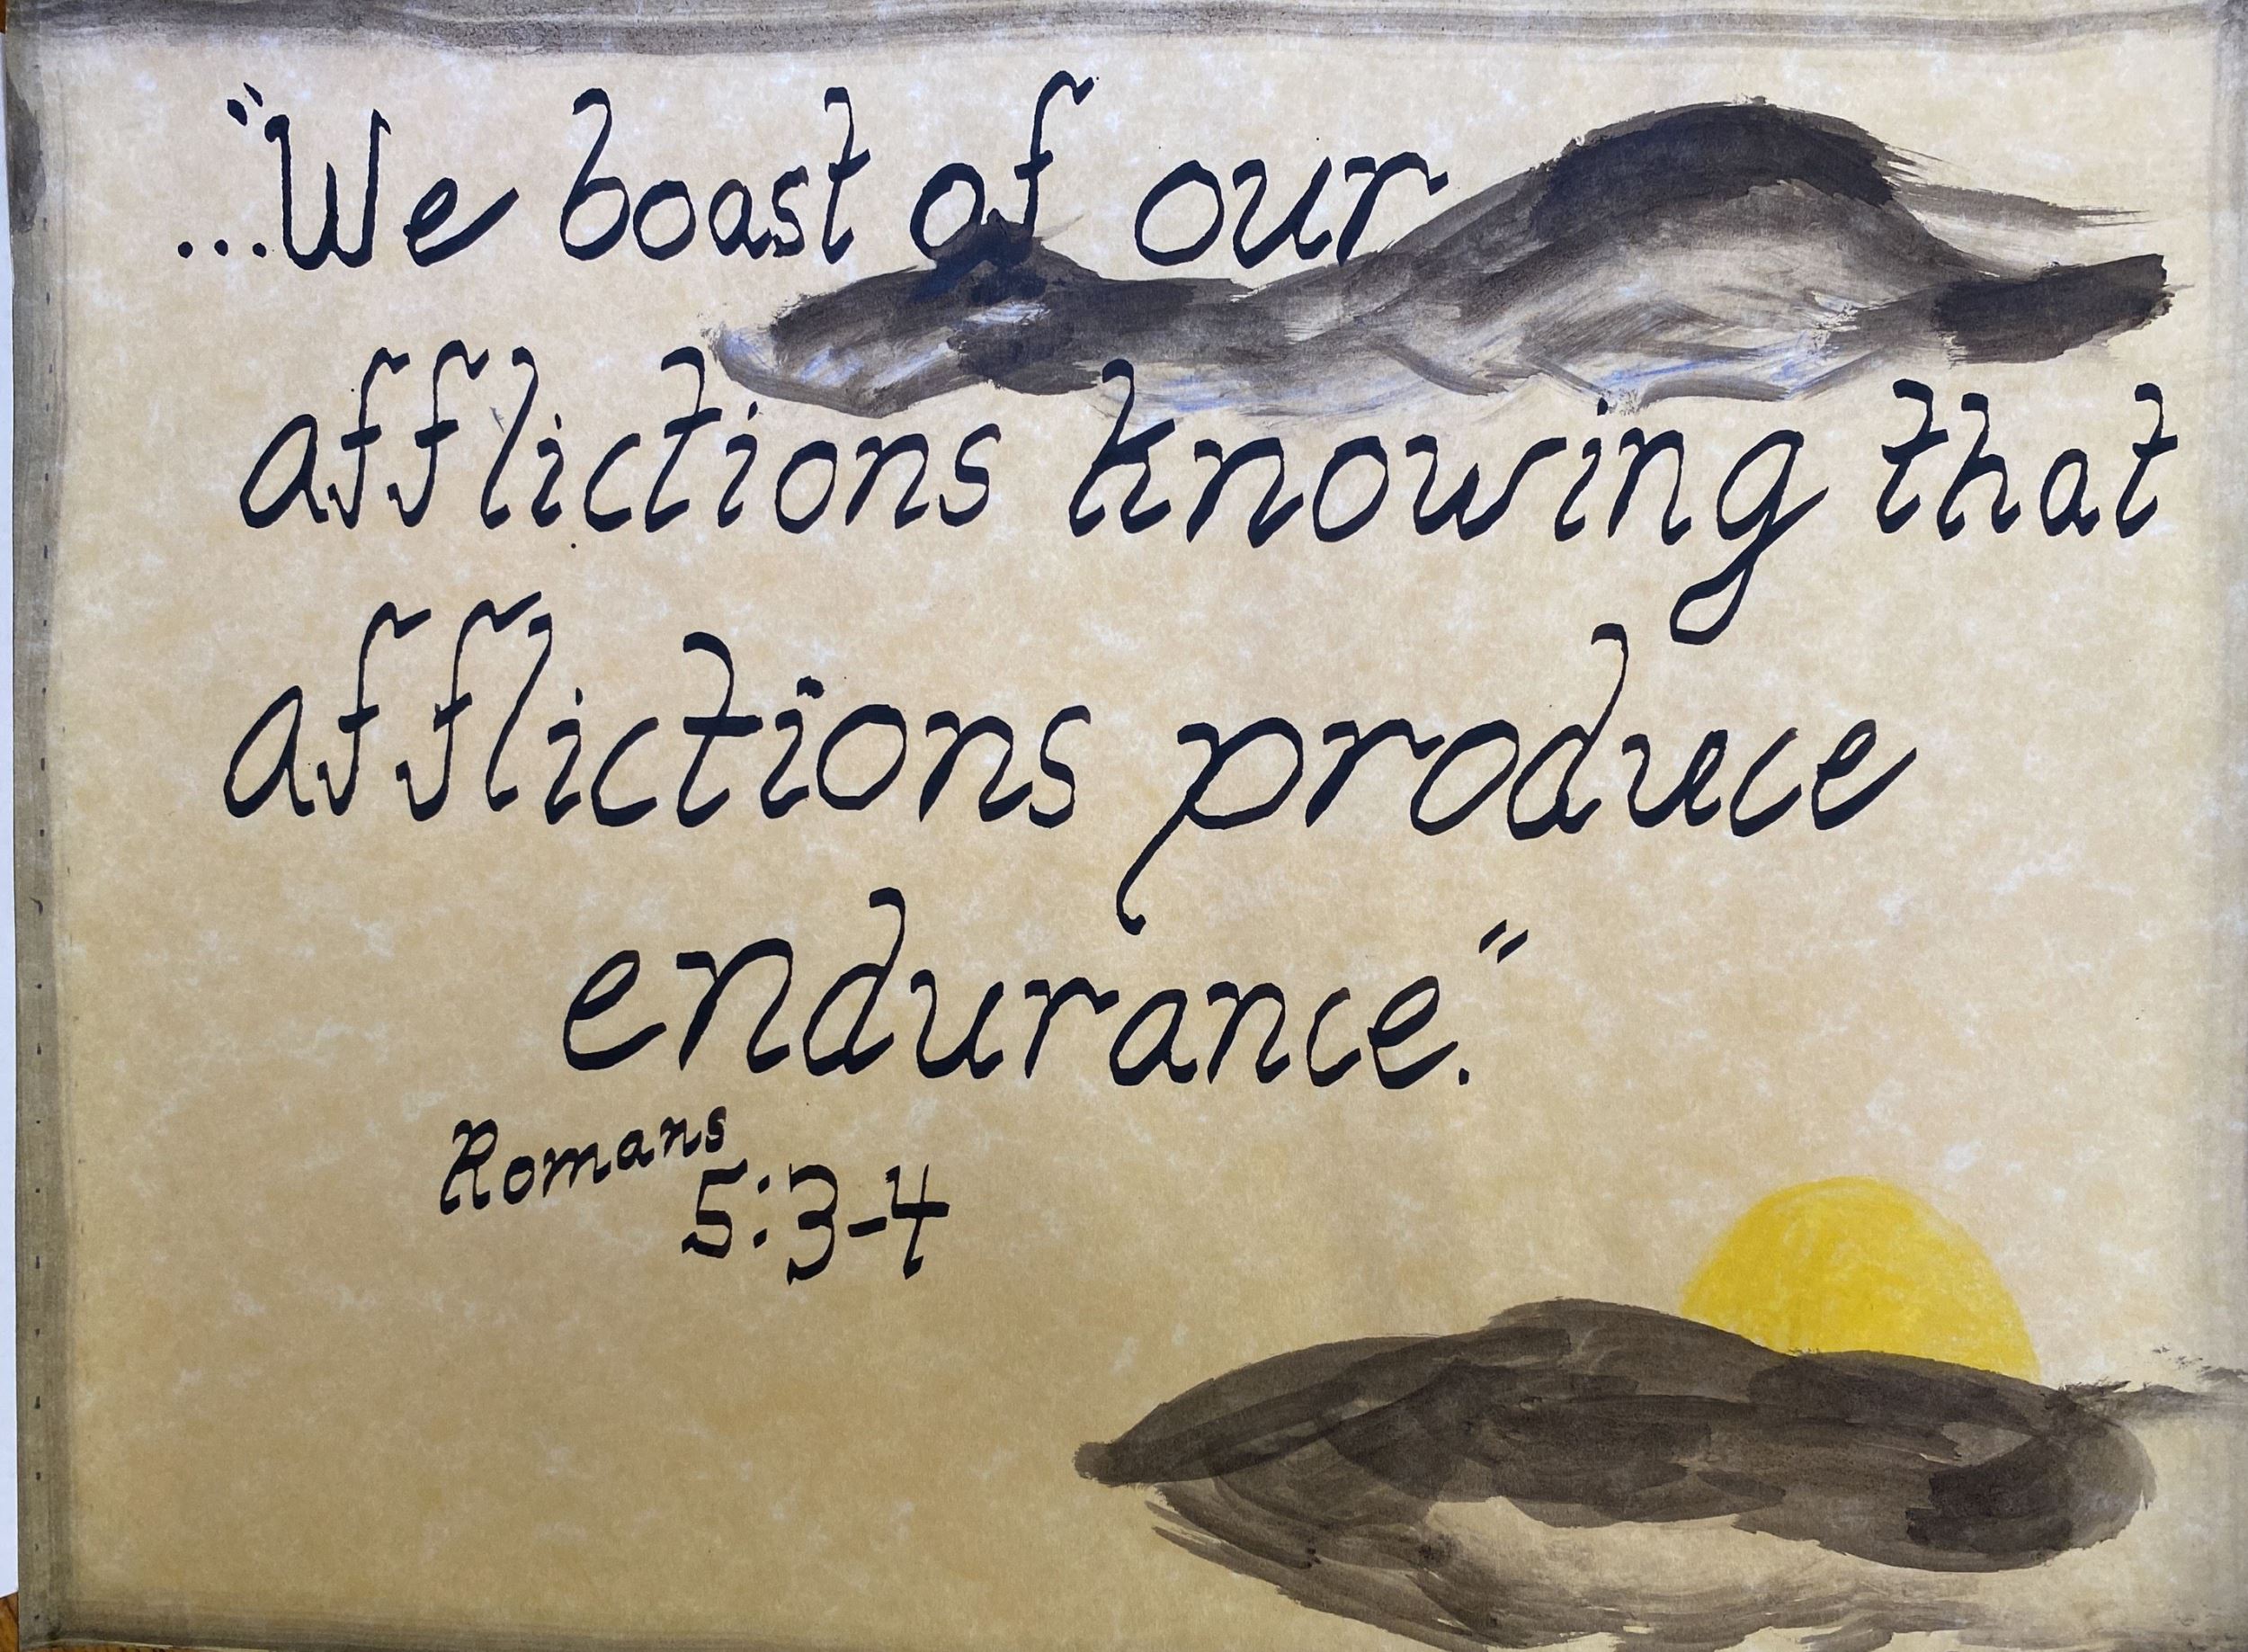 ..."We boast of our
afflictions knowing that
afflictions produce
endurance."
Romans
5:3-4